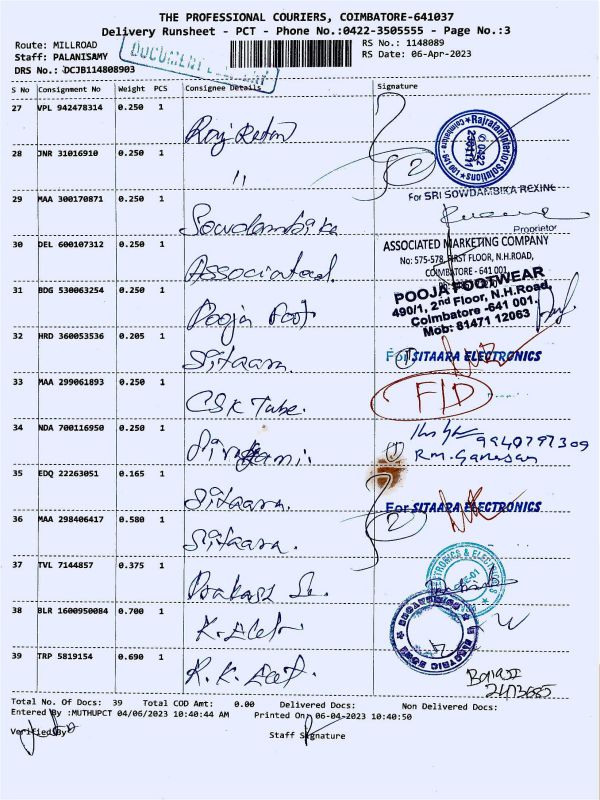 THE PROFESSIONAL COURIERS, COIMBATORE-641037
Delivery Runsheet - PCT - Phone No.:0422-3505555 - Page No.:3
Route: MILLROAD RS No.: 1148089
Staff: PALANISAMY RS Date: 06-Apr-2023
DRS No.: DCJB114808903
DOCUMENT
S No Consignment No Weight PCS Consignee Details Signature
27 VPL 942478314 0.250 1
Raj Ratan
Rajratan Interior Solutions
0422
28 JNR 31016910 0.250 1
"
2
29 MAA 300170871 0.250 1
For SRI SOWDAMBIKA REXINE
Sowdambika
Proprietor
30 DEL 600107312 0.250 1
ASSOCIATED MARKETING COMPANY
No: 575-578, FIRST FLOOR, N.H.ROAD,
COIMBATORE - 641 001
Associated.
31 BDG 530063254 0.250 1
POOJA FOOTWEAR
490/1, 2nd Floor, N.H.Road,
Coimbatore -641 001.
Mob: 81471 12063
Pooja Foot
32 HRD 360053536 0.205 1
For SITAARA ELECTRONICS
Sitaara.
33 MAA 299061893 0.250 1
F/D
CSK Tube.
34 NDA 700116950 0.250 1
9940797309
R.M. Ganesan
35 EDQ 22263051 0.165 1
Sitaara.
For SITAARA ELECTRONICS
36 MAA 298406417 0.580 1
2
Sitaara.
37 TVL 7144857 0.375 1
Prakash
38 BLR 1600950084 0.700 1
39 TRP 5819154 0.690 1
R.K.
Total No. Of Docs: 39 Total COD Amt: 0.00 Delivered Docs: Non Delivered Docs:
Entered By :MUTHUPCT 04/06/2023 10:40:44 AM Printed On: 06-04-2023 10:40:50
Verified By Staff Signature